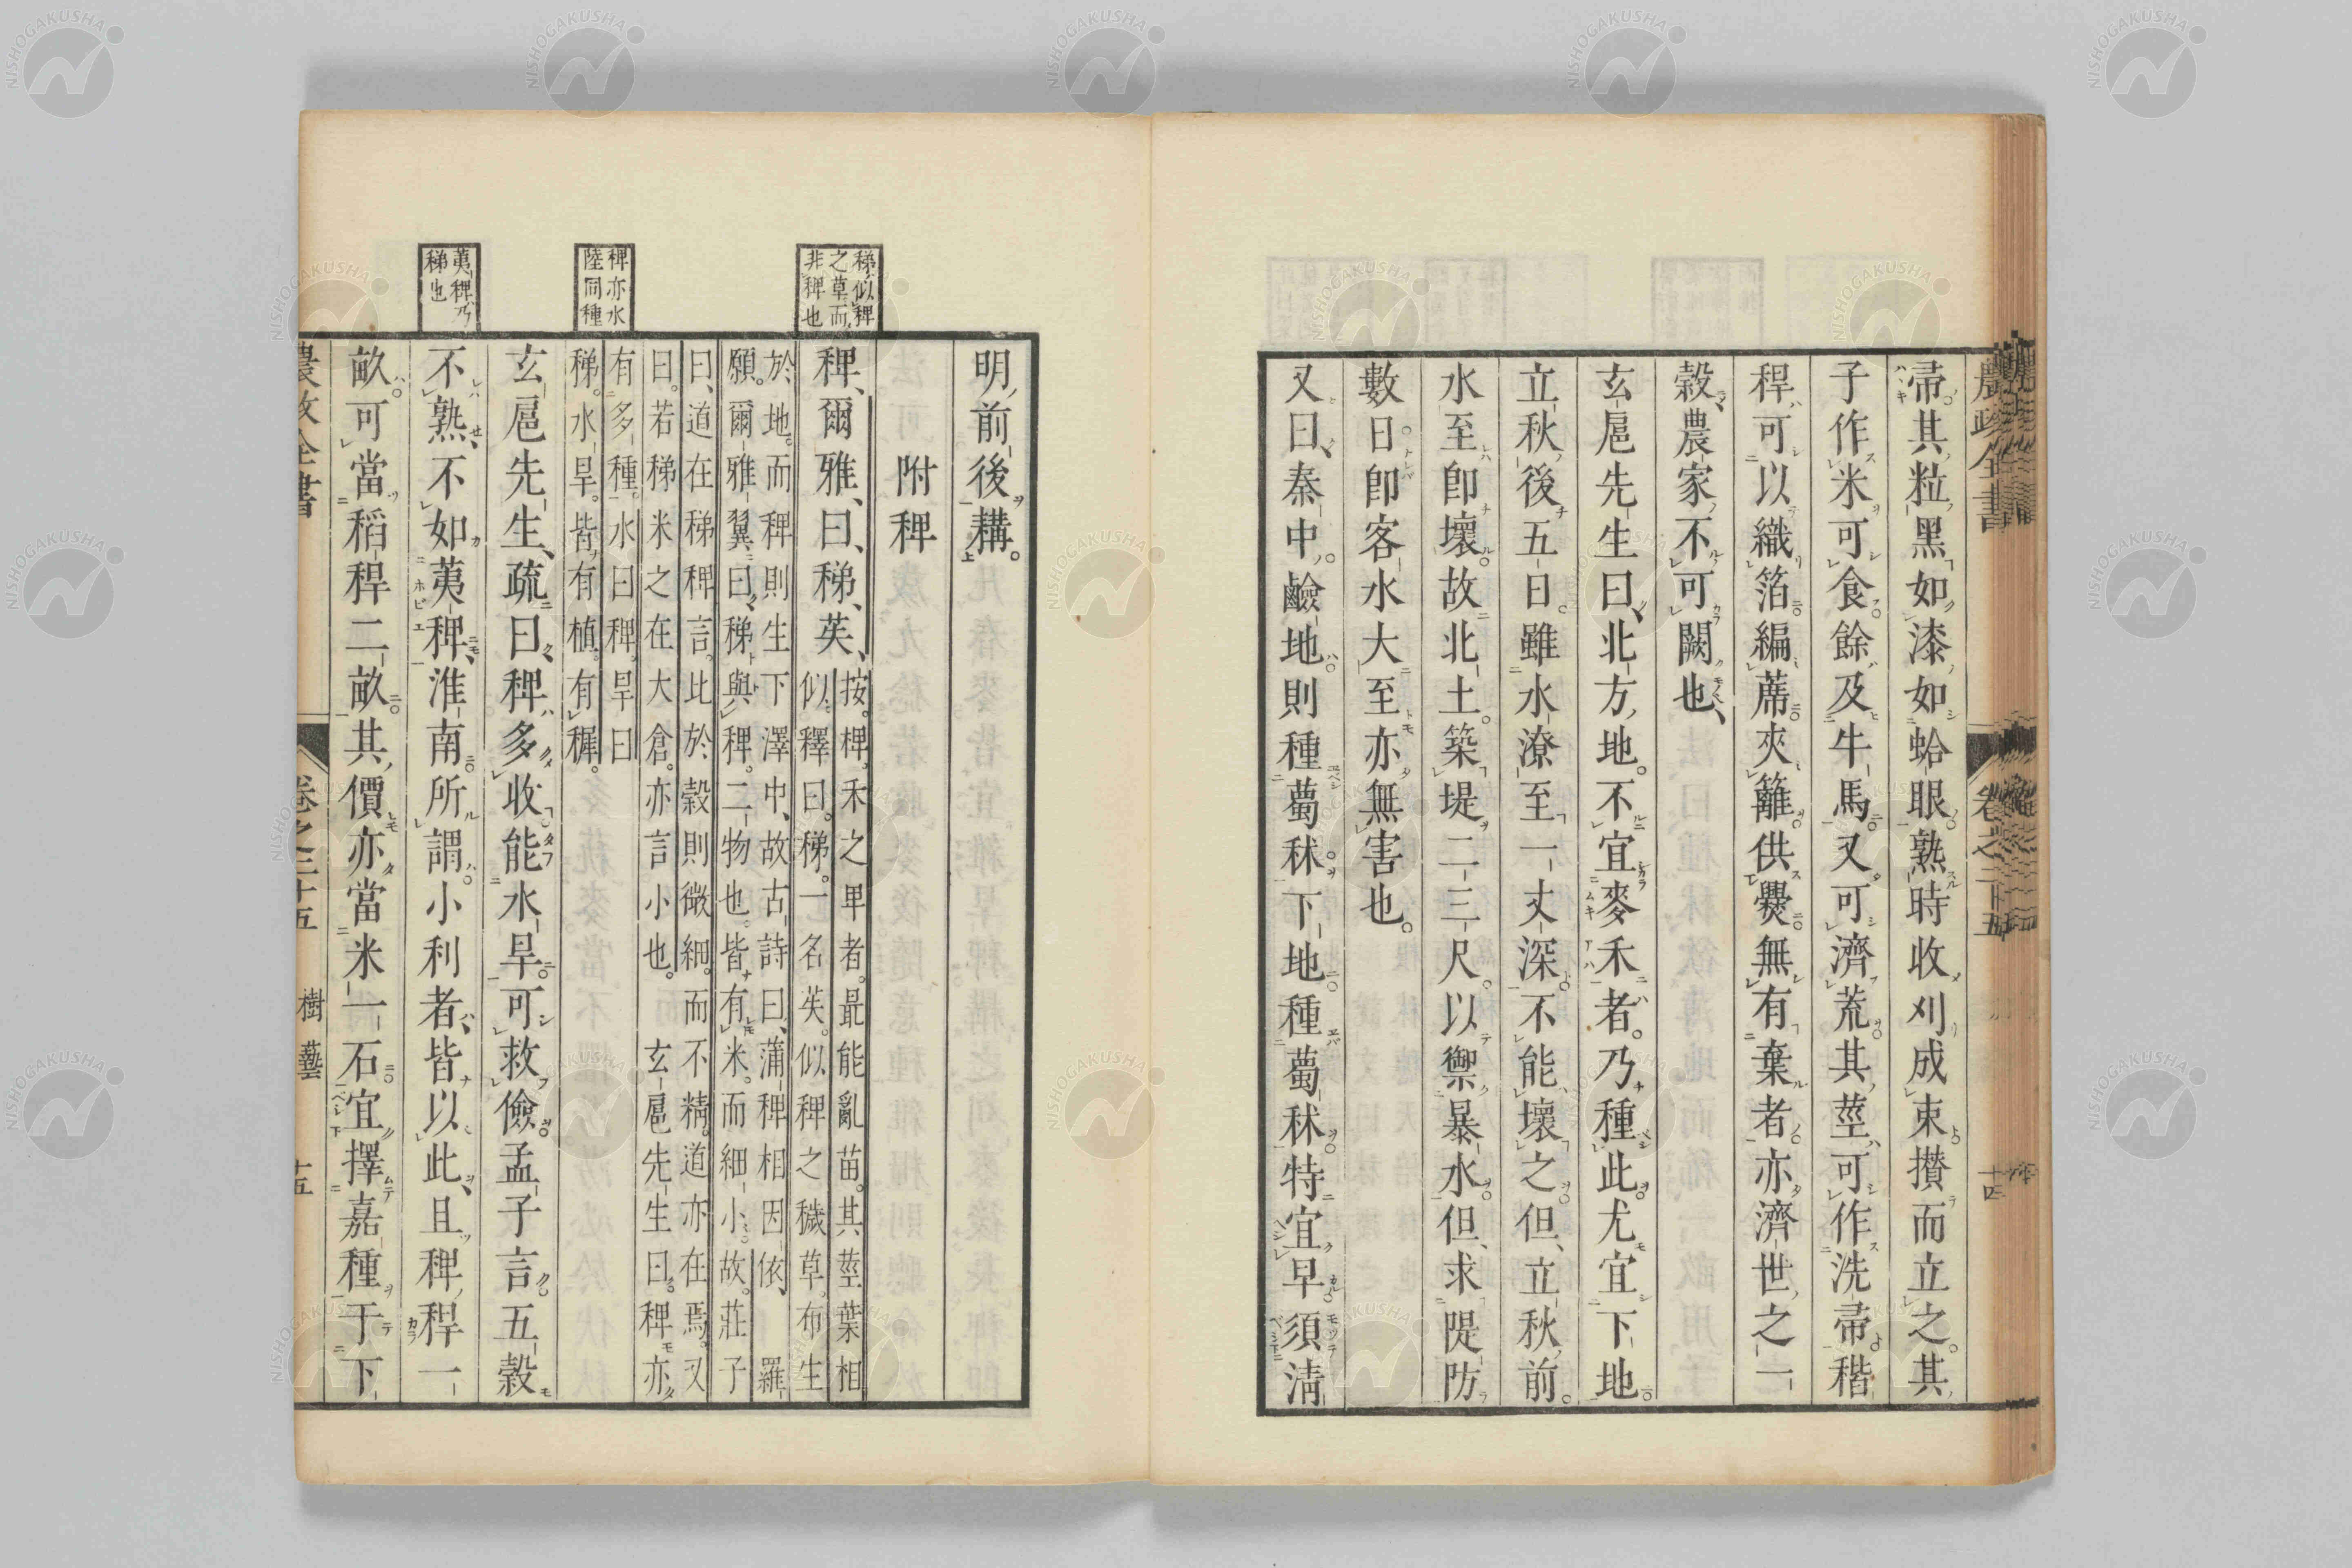 農政全書 卷之二十五 十四
帚其粒黑如漆如蛤眼熟時收刈成束攅而立之。其
子作米可食餘及牛馬又可濟荒其莖可作洗帚稭
稈可以織箔編蓆夾籬供爨無有棄者亦濟世之一
穀農家不可闕也、
玄扈先生曰、北方地。不宜麥禾者。乃種此尤宜下地
立秋後五日。雖水潦至一丈深不能壞之但、立秋前。
水至卽壞。故北土。築堤二三尺。以禦暴水但、求隄防
數日卽客水大至亦無害也。
又曰、秦中。鹼地則種薥秫下地種薥秫特宜早須淸
明前後耩。
附稗
稗、爾雅、曰、稊、苵、
按。稗。禾之卑者。最能亂苗。其莖葉相
似。釋曰。稊。一名苵。似稗之穢草。布生
於地而稗則生下澤中、故古詩曰、蒲稗相因依、羅
願。爾雅翼曰、稊與稗。二物也。皆有米。而細小。故。莊子
曰、道在稊稗言。此於穀則微細。而不精。道亦在焉。又
曰。若稊米之在大倉。亦言小也。玄扈先生曰。稗亦
有多種。水曰稗。旱曰
稊。水旱。皆有植。有穉。
玄扈先生、疏曰、稗多收能水旱可救儉孟子言五穀
不熟、不如荑稗、淮南所謂小利者、皆以此、且稗稈一
畝。可當稻稈二畝其價亦當米一石宜擇嘉種于下
稊似稗
之草而
非稗也
稗亦水
陸同種
荑稗乃
稊也
農政全書 卷之二十五 樹藝 十五
NISHOGAKUSHA